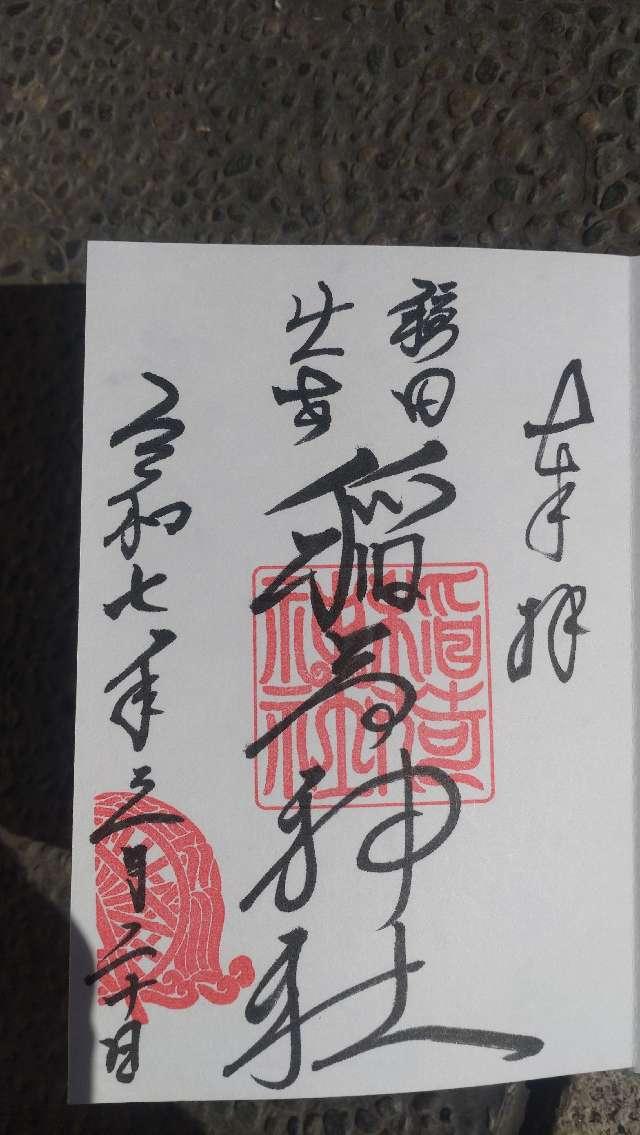 奉拝
田
出世
稲荷神社
稲荷
神社
令和七年三月二十日